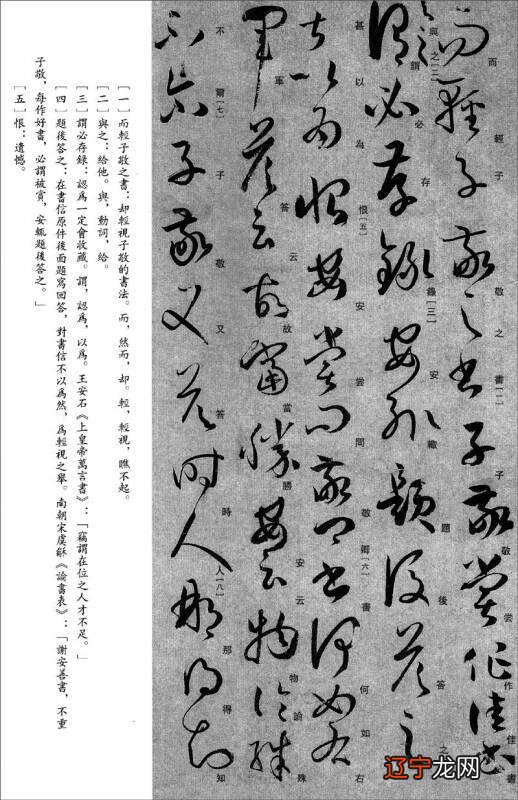 而輕子敬之書[一]子敬嘗作佳書
與之[二]謂必存錄[三]安輒題後答之
甚以為恨[五]安嘗問敬卿[六]書何如右
軍答云故當勝安云物論殊
不爾[七]子敬又答時人[八]那得知
[一]而輕子敬之書：却輕視子敬的書法。而，然而，却。輕，輕視，瞧不起。
[二]與之：給他。與，動詞，給。
[三]謂必存録：認爲一定會收藏。謂，認爲，以爲。王安石《上皇帝萬言書》：「竊謂在位之人才不足。」
[四]題後答之：在書信原件後面題寫回答，對書信不以爲然，爲輕視之舉。南朝宋虞龢《論書表》：「謝安善書，不重
子敬，每作好書，必謂被賞，安輒題後答之。」
[五]恨：遺憾。
辽宁龙网